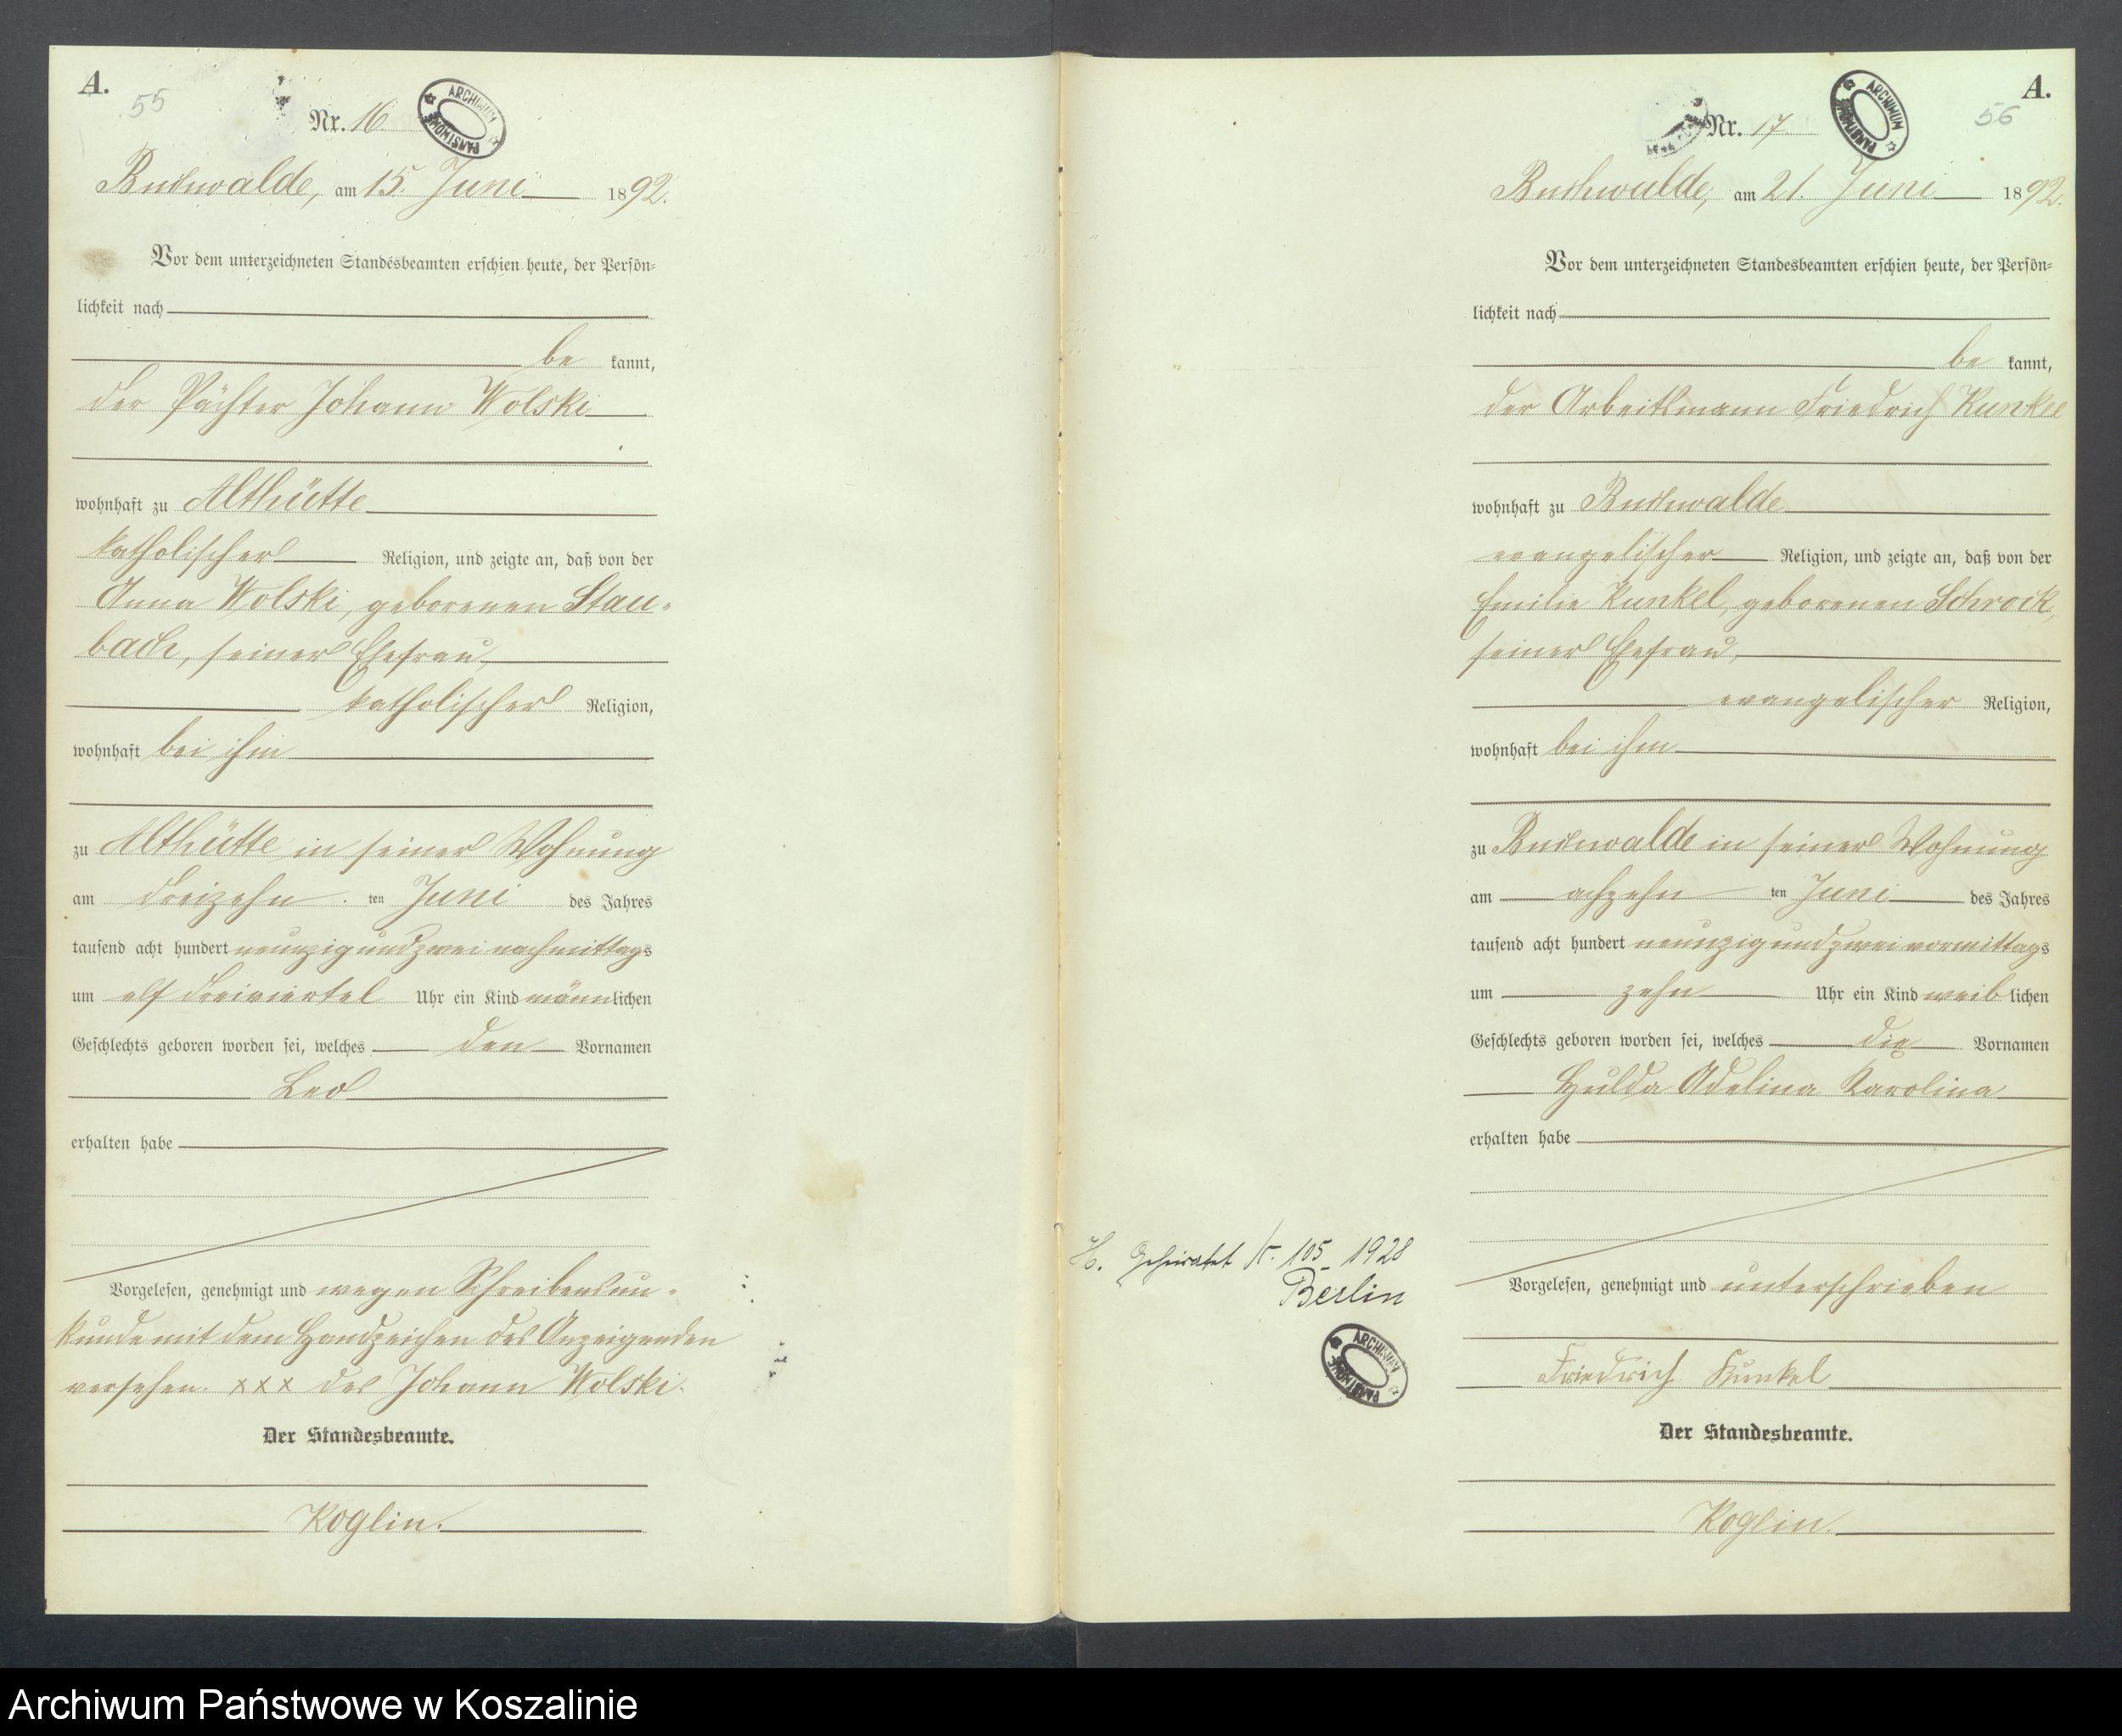 A.
55
Nr. 16
ARCHIWUM PAŃSTWOWE
Buchwalde, am 15. Juni 1892.
Vor dem unterzeichneten Standesbeamten erschien heute, der Persön-
lichkeit nach
be kannt,
der Pächter Johann Wolski
wohnhaft zu Althütte
katholischer Religion, und zeigte an, daß von der
Anna Wolski, geborenen Stau-
bach, seiner Ehefrau,
katholischer Religion,
wohnhaft bei ihm
zu Althütte in seiner Wohnung
am dreizehn ten Juni des Jahres
tausend acht hundert neunzig und zwei nachmittags
um elf dreiviertel Uhr ein Kind männlichen
Geschlechts geboren worden sei, welches den Vornamen
Leo
erhalten habe
Vorgelesen, genehmigt und wegen Schreibensun-
kunde mit dem Handzeichen des Anzeigenden
versehen. xxx des Johann Wolski.
Der Standesbeamte.
Koglin.
A.
56
Nr. 17
ARCHIWUM PAŃSTWOWE
Buchwalde, am 21. Juni 1892.
Vor dem unterzeichneten Standesbeamten erschien heute, der Persön-
lichkeit nach
be kannt,
der Arbeitsmann Friedrich Kunkel
wohnhaft zu Buchwalde
evangelischer Religion, und zeigte an, daß von der
Emilie Kunkel, geborenen Schrock,
seiner Ehefrau,
evangelischer Religion,
wohnhaft bei ihm
zu Buchwalde in seiner Wohnung
am achzehn ten Juni des Jahres
tausend acht hundert neunzig und zwei vormittags
um zehn Uhr ein Kind weiblichen
Geschlechts geboren worden sei, welches die Vornamen
Hulda Adelina Karolina
erhalten habe
H. Geheiratet 105 1928
Berlin
ARCHIWUM PAŃSTWOWE
Vorgelesen, genehmigt und unterschrieben
Friedrich Kunkel
Der Standesbeamte.
Koglin.
Archiwum Państwowe w Koszalinie